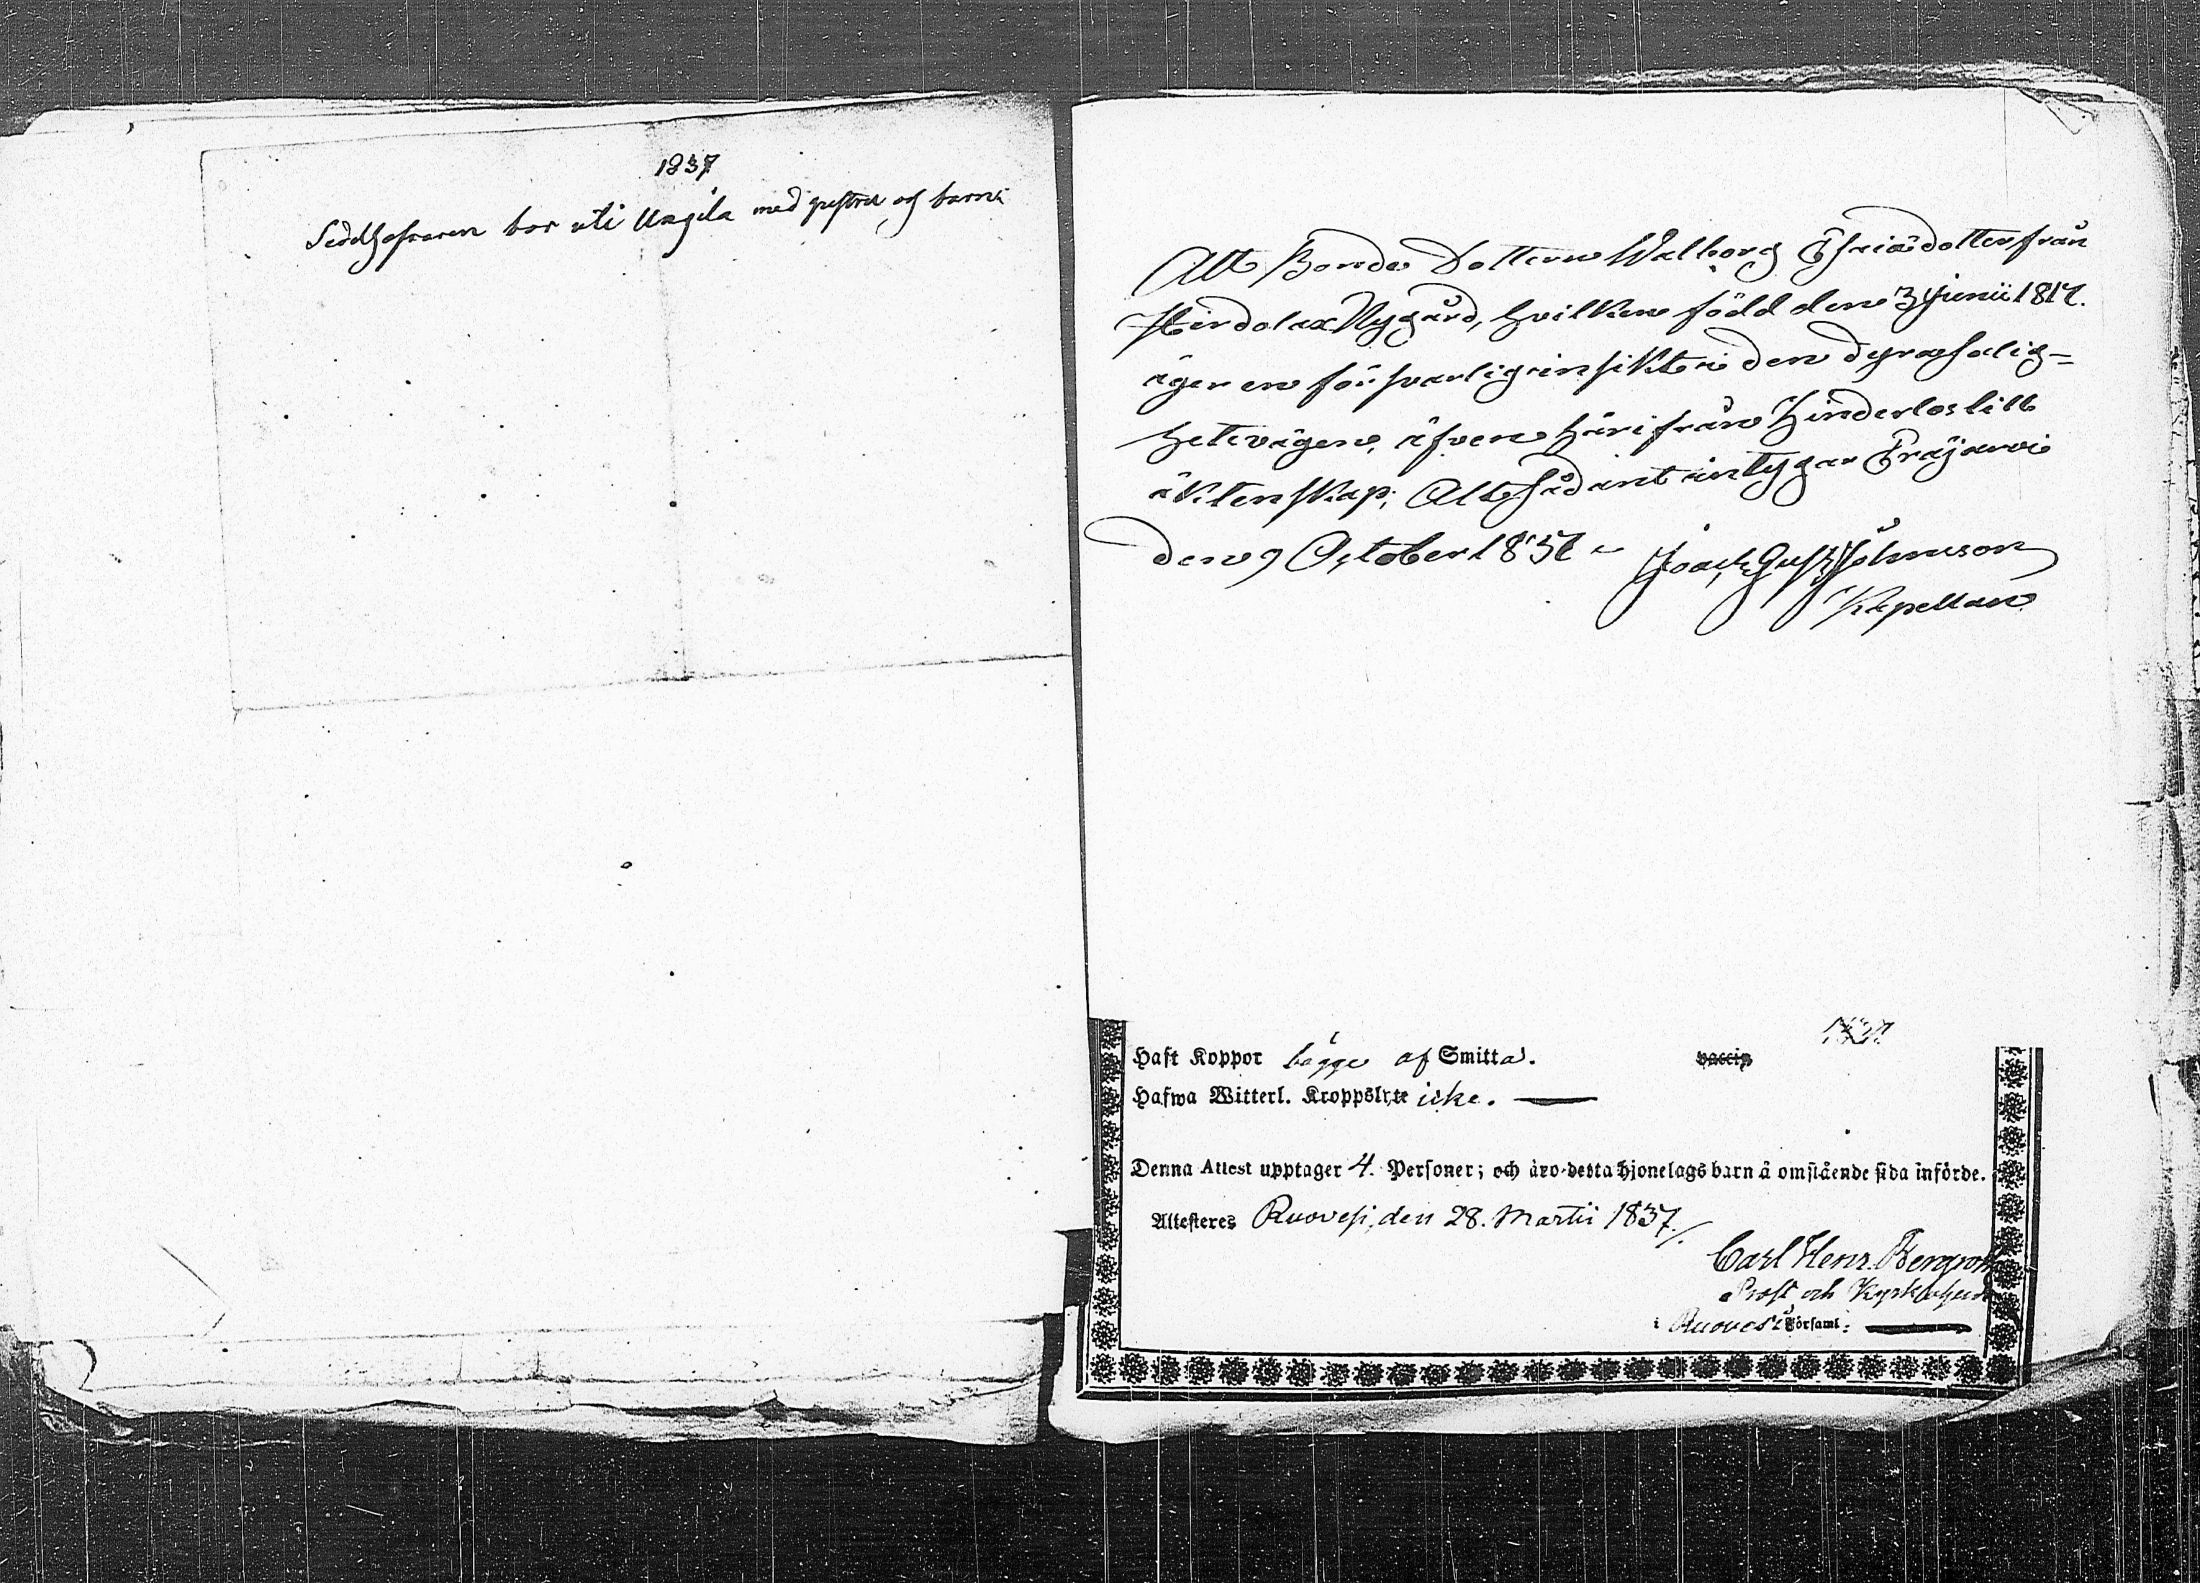 1837
Sedelhafvaren bor uti Uxgila med hustru och barn
Att Bonde Dottern Walborg Esaiædotter från
Hirdolax Nygård, hvilken född den 3 Junii 1817.
äger en försvarlig insikt i den dyra salig-
hetsvägen, äfven härifrån hinderlös till
äktenskap; Alt sådant intygar Träjärvi
den 9 October 1837
Joach. Gust. Johnsson
Kapellan
1837
Haft Koppor bägge af Smitta. vaccin
Hafwa Witterl. Kroppslyte icke.
Denna Attest upptager 4. Personer; och äro detta Hjonelags barn å omstående sida införde.
Attesteres Ruovesi, den 28. Martii 1837./.
Carl Henr. Bergroth
Prost och Kyrkoherde
i Ruovesi Församl: